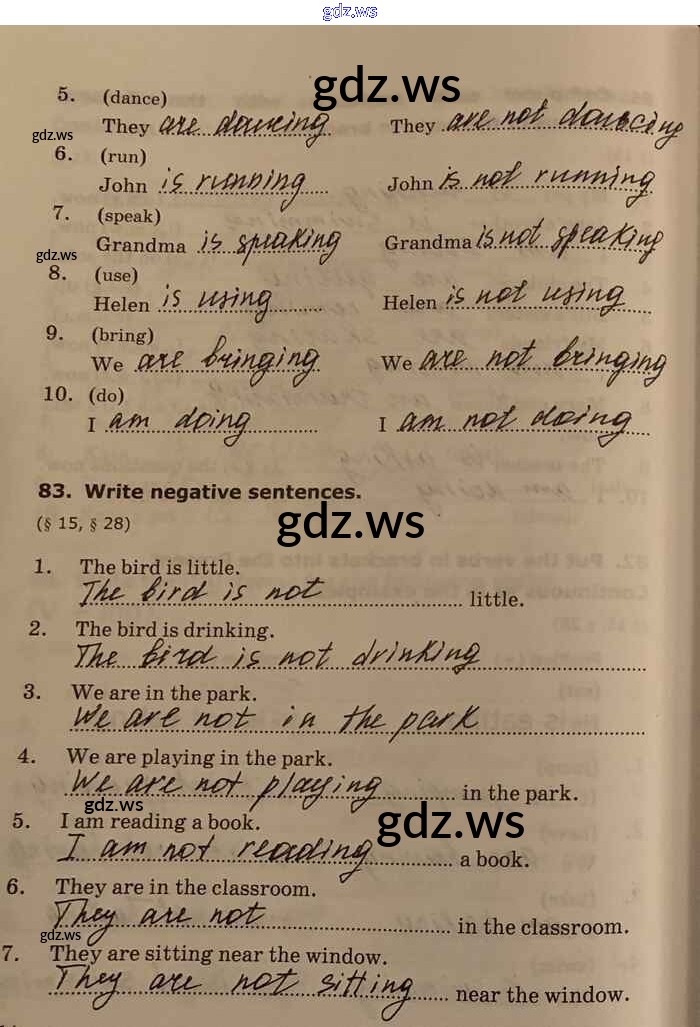 gdz.ws
gdz.ws
5. (dance)
They are dancing They are not dancing
gdz.ws
6. (run)
John is running John is not running
7. (speak)
Grandma is speaking Grandma is not speaking
gdz.ws
8. (use)
Helen is using Helen is not using
9. (bring)
We are bringing We are not bringing
10. (do)
I am doing I am not doing
83. Write negative sentences.
(§ 15, § 28)
gdz.ws
1. The bird is little.
The bird is not little.
2. The bird is drinking.
The bird is not drinking
3. We are in the park.
We are not in the park
4. We are playing in the park.
We are not playing in the park.
gdz.ws
gdz.ws
5. I am reading a book.
I am not reading a book.
6. They are in the classroom.
They are not in the classroom.
gdz.ws
7. They are sitting near the window.
They are not sitting near the window.